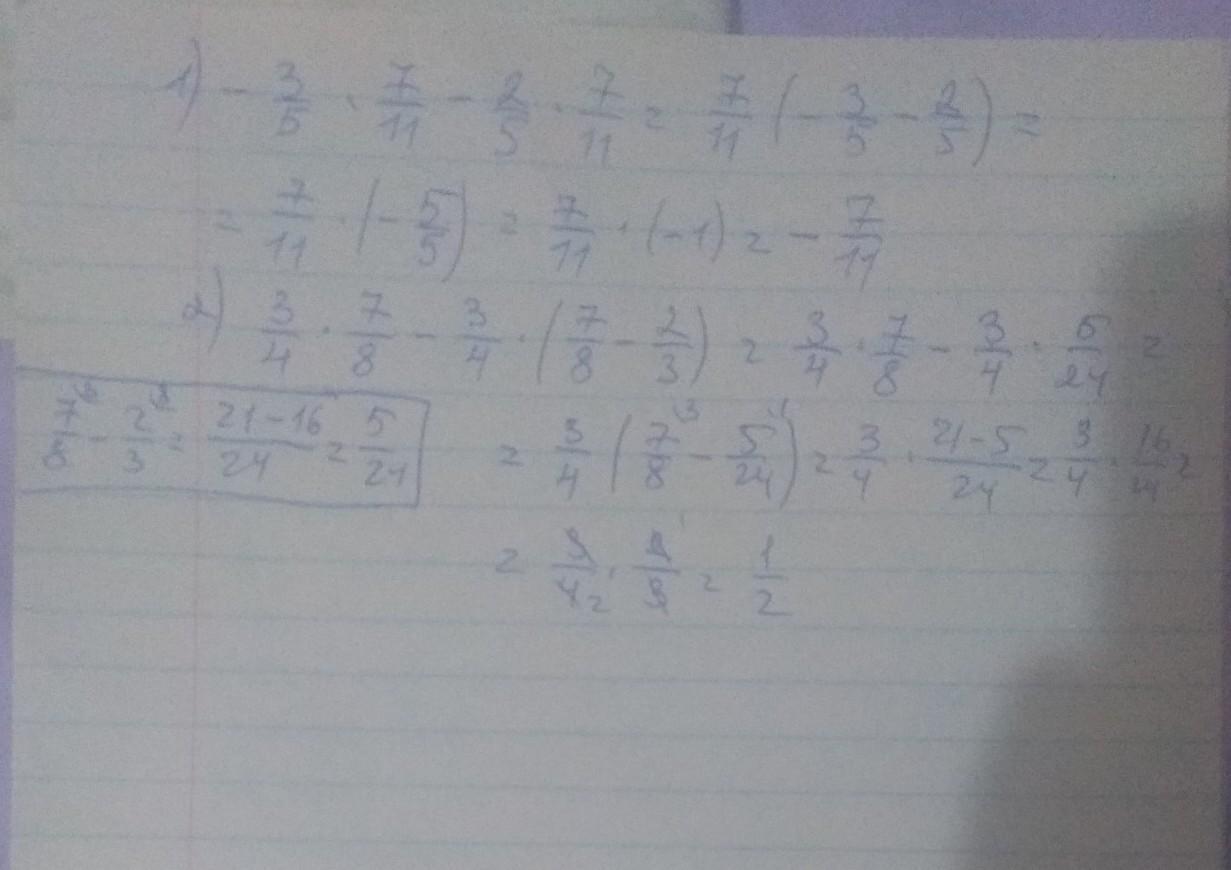 1) - 3/5 · 7/11 - 2/5 · 7/11 = 7/11 (- 3/5 - 2/5) =
= 7/11 · (- 5/5) = 7/11 · (-1) = - 7/11
2) 3/4 · 7/8 - 3/4 · (7/8 - 2/3) = 3/4 · 7/8 - 3/4 · 5/24 =
7/8 - 2/3 = 21-16/24 = 5/24
= 3/4 (7/8 - 5/24) = 3/4 · 21-5/24 = 3/4 · 16/24 =
= 3/4 · 2/3 = 1/2